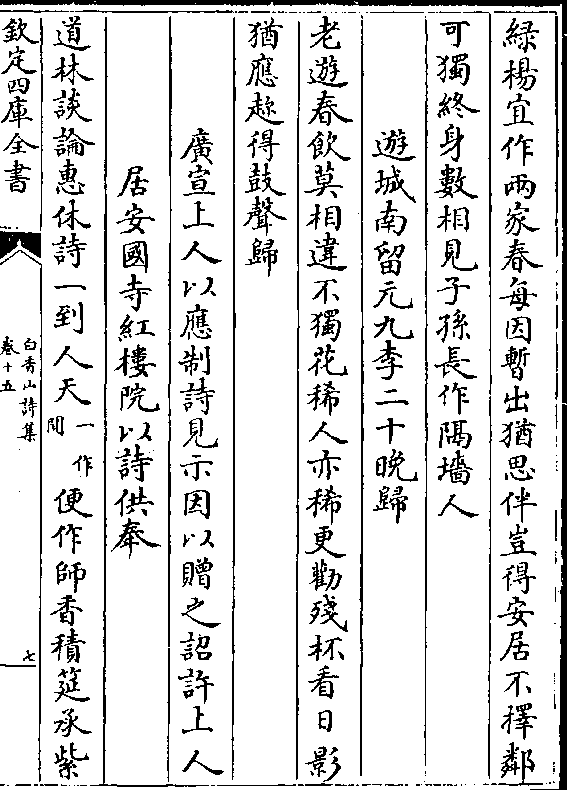 綠楊宜作兩家春每因暫出猶思伴豈得安居不擇鄰
可獨終身數相見子孫長作隔墻人
遊城南留元九李二十晚歸
老遊春飲莫相違不獨花稀人亦稀更勸殘杯看日影
猶應趂得鼓聲歸
廣宣上人以應制詩見示因以贈之詔許上人
居安國寺紅樓院以詩供奉
道林談論惠休詩一到人天一作間便作師香積筵承紫
欽定四庫全書
白香山詩集
卷十五
七